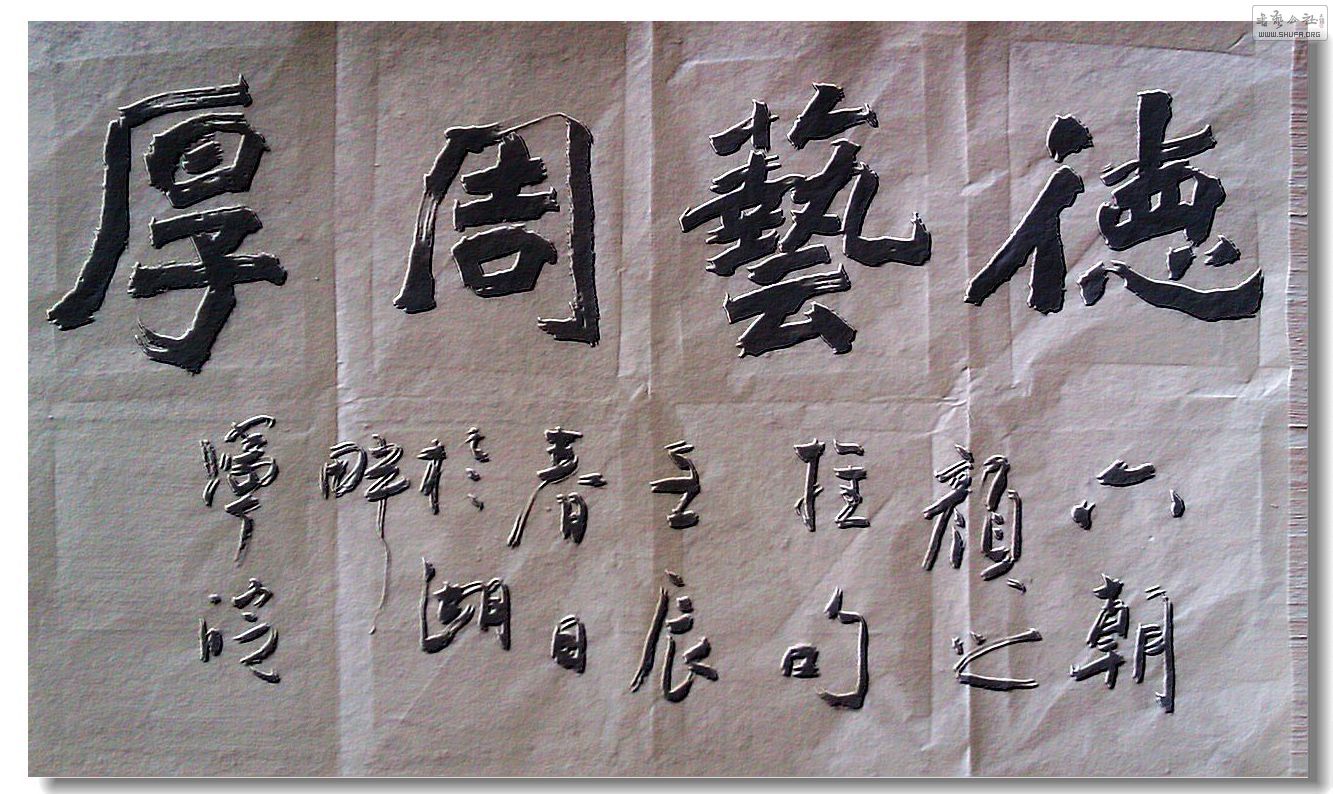 德藝周厚
六朝
顏之
推句
壬辰
春日
於湖
畔
書藝公社
WWW.SHUFA.ORG